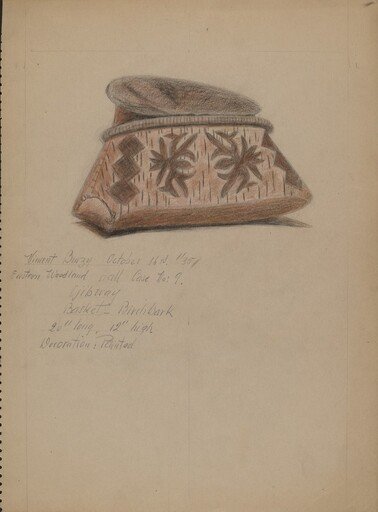 Vincent Burzy October 16th
Eastern Woodland Case No: 9.
Ojibway
Basket - Birch bark
20" long, 12" high
Decoration: Painted